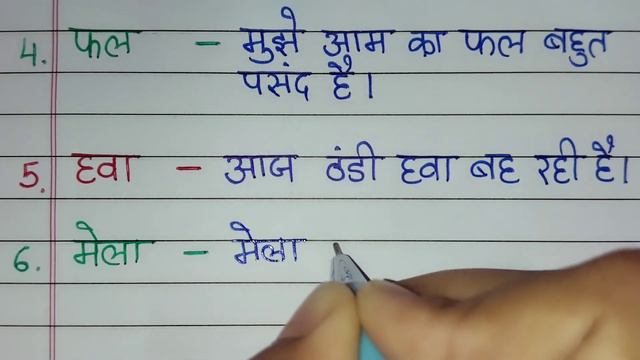 4. फल – मुझे आम का फल बहुत
पसंद है।
5. हवा – आज ठंडी हवा बह रही है।
6. मेला – मेला